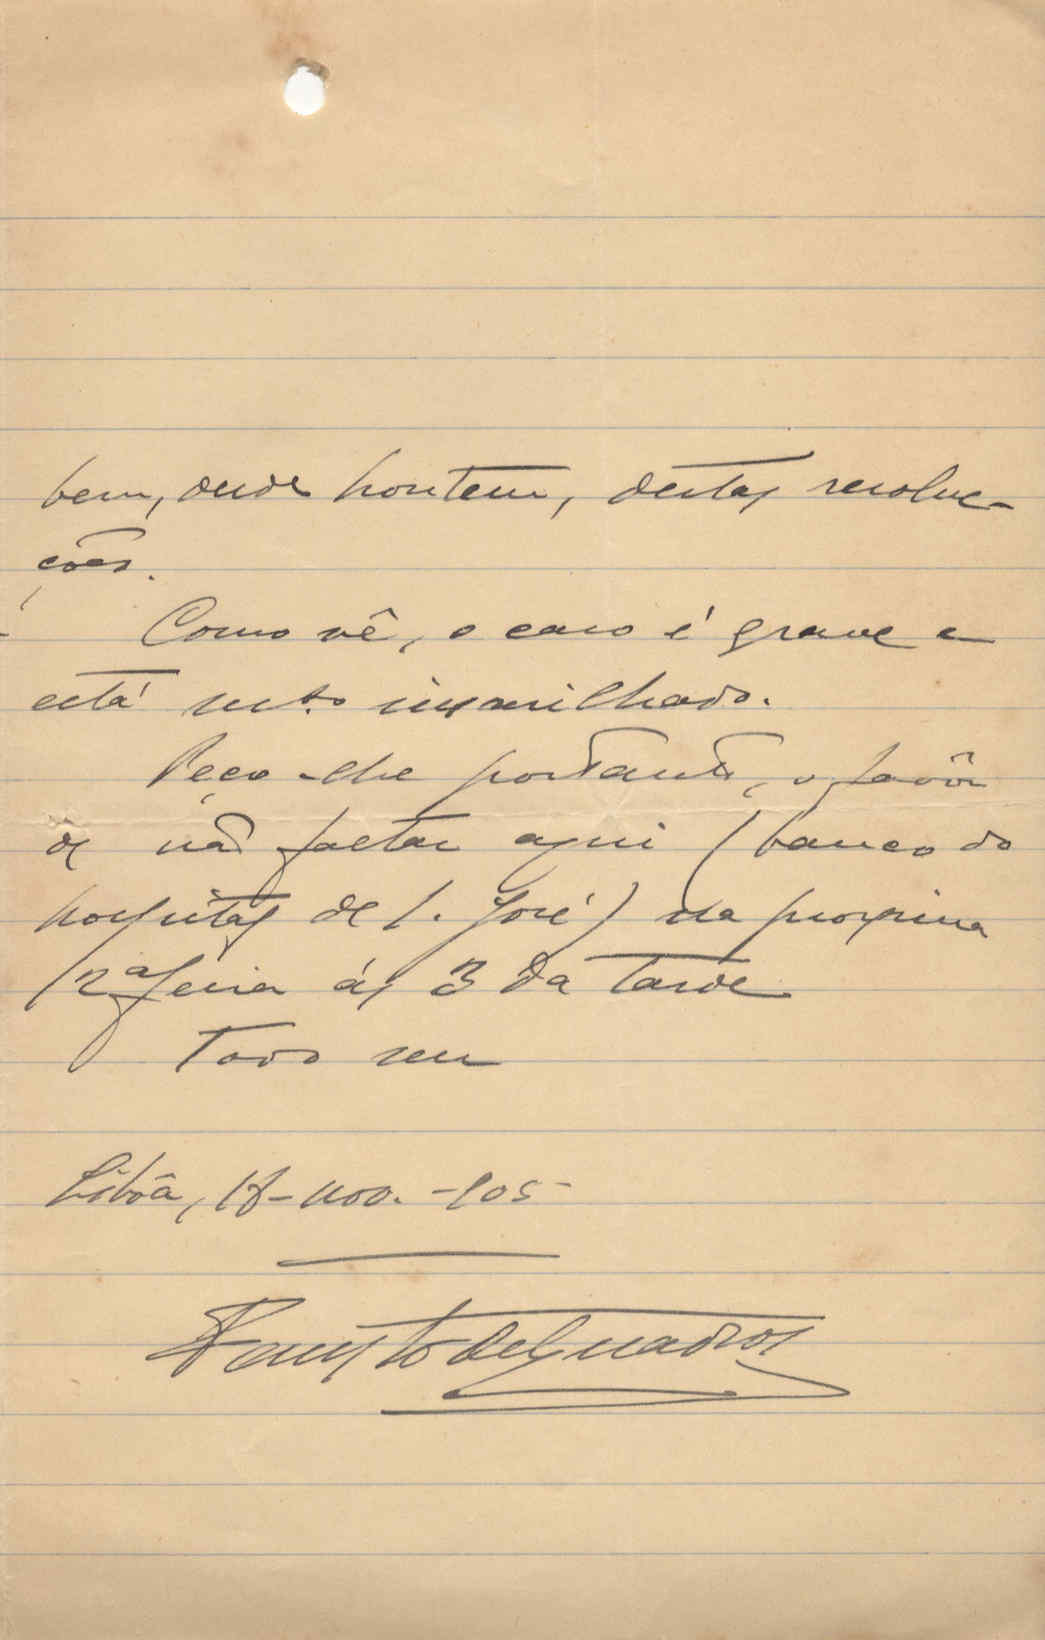 bem, desde hontem, destas resolu-
ções.
Como vê, o caso é grave e
está mto
Peço-lhe portanto, o favôr
de não faltar aqui (banco do
hospital de S. José) na proxima
2ª feira ás 3 da tarde
Todo seu
Lisbôa, 18-nov.-905
Fausto de Quadros